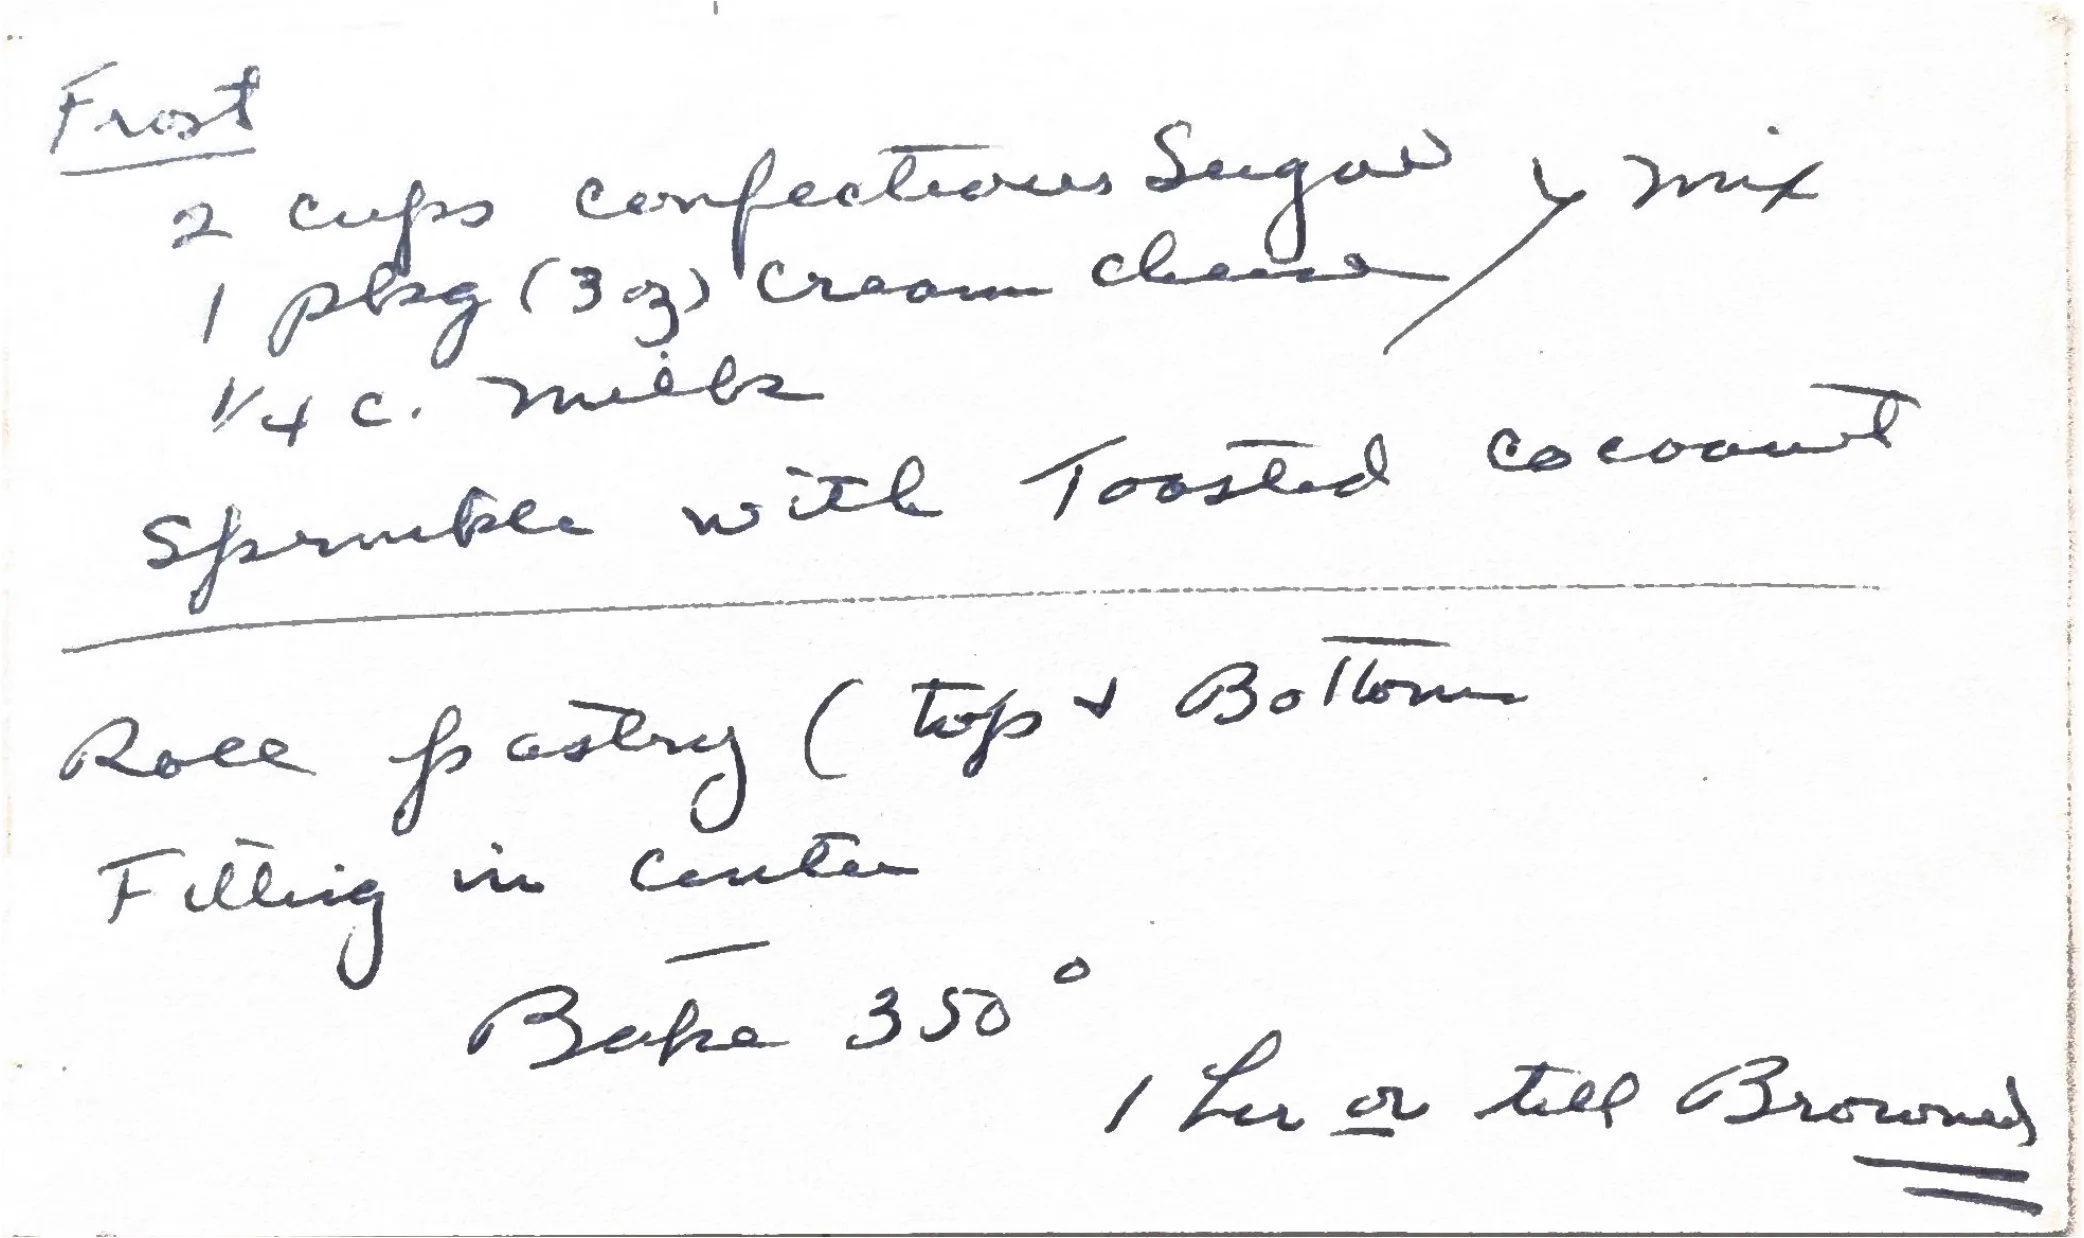 Frost
2 cups confectioners Sugar > mix
1 pkg (3 oz) cream cheese
1/4 c. milk
Sprinkle with Toasted cocoanut
Roll pastry ( top & Bottom
Filling in center
Bake 350°
1 hr or till Browned